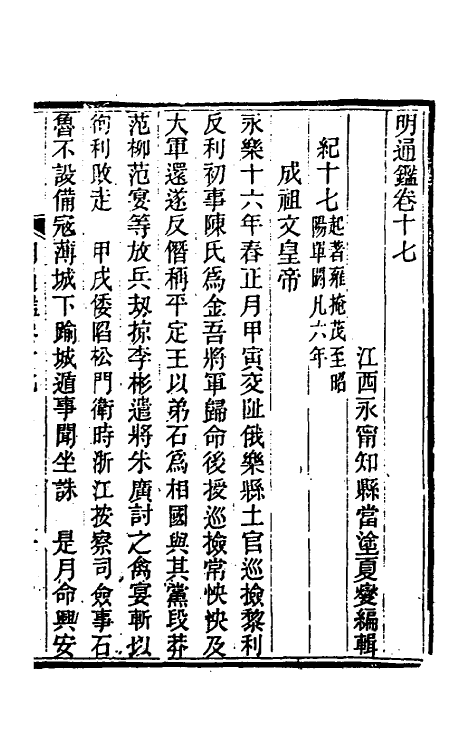 明通鑑卷十七
江西永甯知縣當塗夏燮編輯
紀十七起著雍掩茂至昭陽單閼凡六年
成祖文皇帝
永樂十六年春正月甲寅交阯俄樂縣土官巡檢黎利
反利初事陳氏爲金吾將軍歸命後授巡撿常怏怏及
大軍還遂反僭稱平定王以弟石爲相國與其黨段莽
范柳范宴等放兵刼掠李彬遣將朱廣討之禽宴斬以
徇利敗走 甲戌倭陷松門衛時浙江按察司僉事石
魯不設備寇薄城下踰城遁事聞坐誅 是月命興安